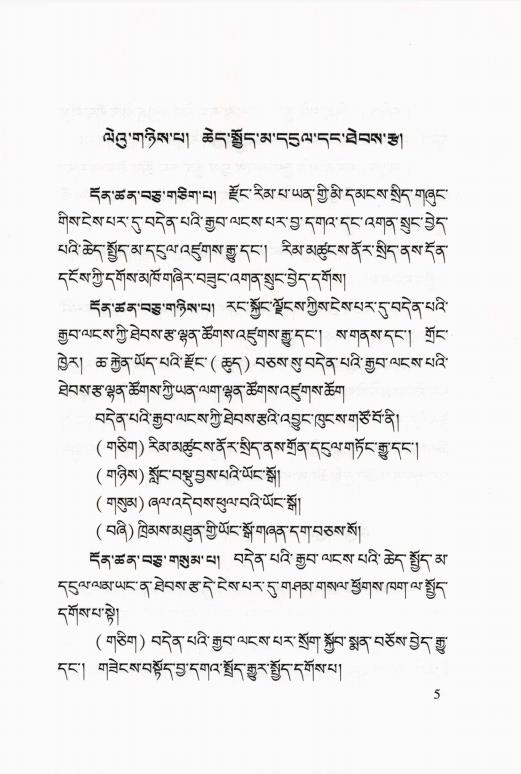 ལེའུ་གཉིས་པ། ཆེད་སྤྱོད་མ་དངུལ་དང་ཐེབས་རྩ།
དོན་ཚན་བཅུ་གཅིག་པ། རྫོང་རིམ་པ་ཡན་གྱི་མི་དམངས་སྲིད་གཞུང་
གིས་ངེས་པར་དུ་བདེན་པའི་རྒྱབ་ལངས་པར་བྱ་དགའ་དང་འགན་སྲུང་བྱེད་
པའི་ཆེད་སྤྱོད་མ་དངུལ་འཛུགས་རྒྱུ་དང་། རིམ་མཚུངས་ནོར་སྲིད་ནས་དོན་
དངོས་ཀྱི་དགོས་མཁོ་གཞིར་བཟུང་འགན་སྲུང་བྱེད་དགོས།
དོན་ཚན་བཅུ་གཉིས་པ། རང་སྐྱོང་ལྗོངས་ཀྱིས་ངེས་པར་དུ་བདེན་པའི་
རྒྱབ་ལངས་ཀྱི་ཐེབས་རྩ་ལྷན་ཚོགས་འཛུགས་རྒྱུ་དང་། ས་གནས་དང་། གྲོང་
ཁྱེར། ཆ་རྐྱེན་ཡོད་པའི་རྫོང་(ཆུད)བཅས་སུ་བདེན་པའི་རྒྱབ་ལངས་པའི་
ཐེབས་རྩ་ལྷན་ཚོགས་ཀྱི་ཡན་ལག་ལྷན་ཚོགས་འཛུགས་ཆོག
བདེན་པའི་རྒྱབ་ལངས་ཀྱི་ཐེབས་རྩའི་འབྱུང་ཁུངས་གཙོ་བོ་ནི།
(གཅིག)རིམ་མཚུངས་ནོར་སྲིད་ནས་གྲོན་དངུལ་གཏོང་རྒྱུ་དང་།
(གཉིས)སློང་བསྡུ་བྱས་པའི་ཡོང་སྒོ།
(གསུམ)ཞལ་འདེབས་ཕུལ་བའི་ཡོང་སྒོ།
(བཞི)ཁྲིམས་མཐུན་གྱི་ཡོང་སྒོ་གཞན་དག་བཅས་སོ།
དོན་ཚན་བཅུ་གསུམ་པ། བདེན་པའི་རྒྱབ་ལངས་པའི་ཆེད་སྤྱོད་མ་
དངུལ་ལམ་ཡང་ན་ཐེབས་རྩ་དེ་ངེས་པར་དུ་གཤམ་གསལ་ཕྱོགས་ཁག་ལ་སྤྱོད་
དགོས་པ་སྟེ།
(གཅིག) བདེན་པའི་རྒྱབ་ལངས་པར་སྲོག་སྐྱོབ་སྨན་བཅོས་བྱེད་རྒྱུ་
དང་། གཟེངས་བསྟོད་བྱ་དགའ་སྤྲོད་རྒྱུར་སྤྱོད་དགོས་པ།
5